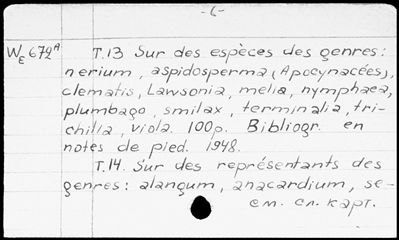 -6-
WE 672A T.13 Sur des espèces des genres:
nerium, aspidosperma (Apocynacées),
clematis, Lawsonia, melia, nymphaea,
plumbago, smilax, terminalia, tri-
chilia, viola. 100p. Bibliogr. en
notes de pied. 1948.
T.14. Sur des représentants des
genres: alangum, anacardium, se-
см. сл. карт.